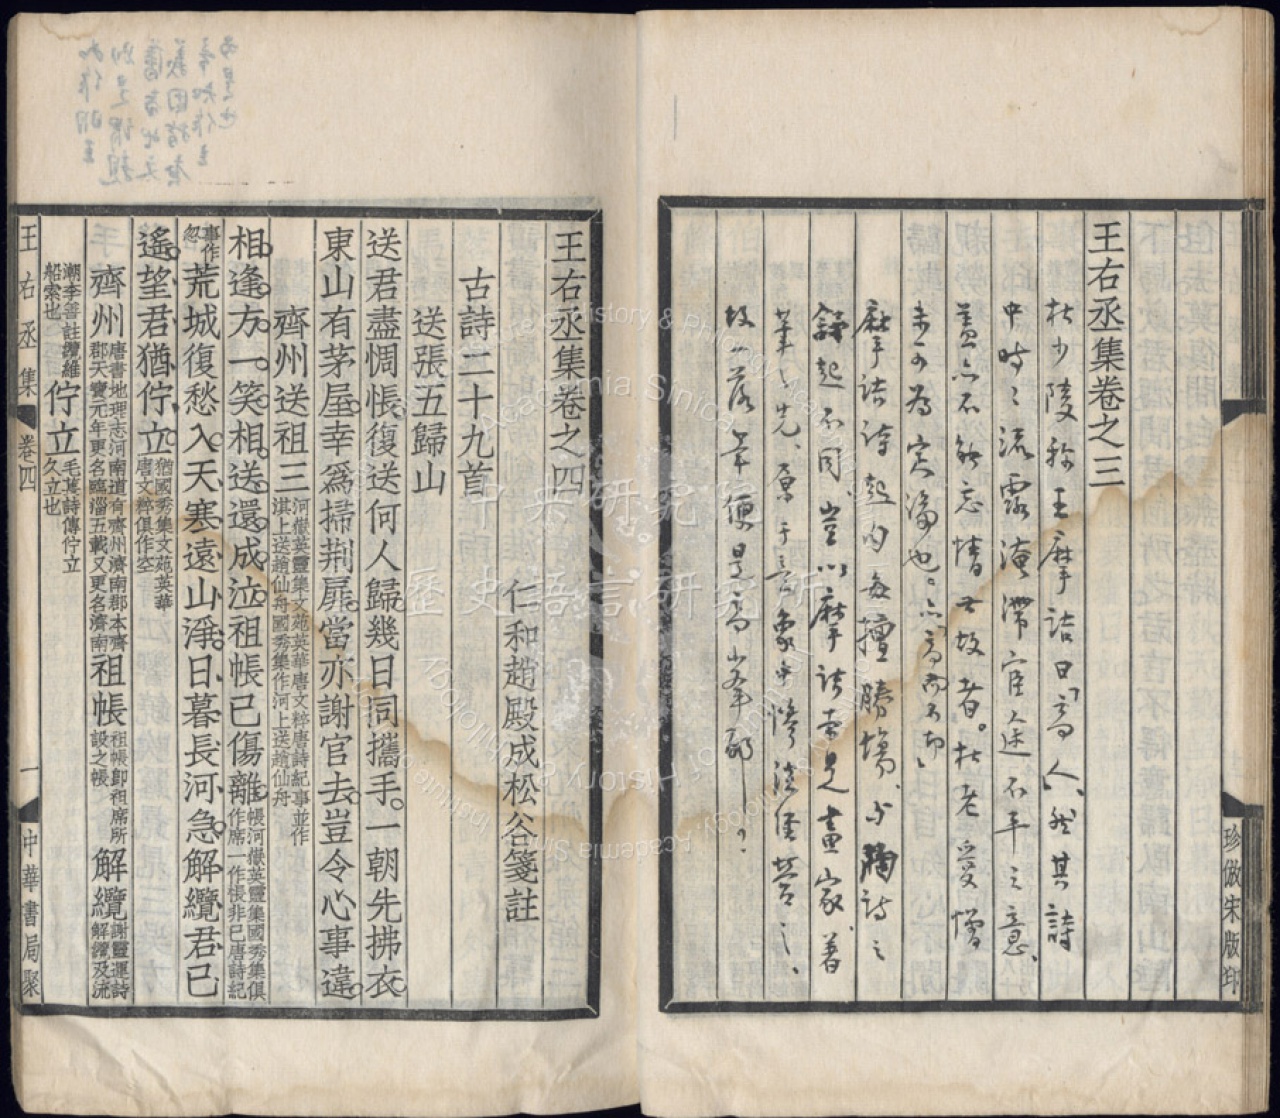 王右丞集卷之三
杜少陵稱王摩詰曰「高人」然其詩
中時々流露淹滯宦途不平之意、
蓋亦不能忘情世故者。杜老愛憎
未可為定論也。
摩詰詩起句每擅勝場、小謝詩之
起不同、豈以摩詰本是畫家、著
筆之先、
故一落筆便是高峯耶？
珍倣宋版印
王右丞集卷之四
仁和趙殿成松谷箋註
古詩二十九首
送張五歸山
送君盡惆悵復送何人歸幾日同攜手一朝先拂衣
東山有茅屋幸爲掃荆扉當亦謝官去豈令心事違
齊州送祖三河嶽英靈集文苑英華唐文粹唐詩紀事並作淇上送趙仙舟國秀集作河上送趙仙舟
相逢方一笑相送還成泣祖帳已傷離帳河嶽英靈集國秀集俱作席一作帳非已唐詩紀
事作忽荒城復愁入天寒遠山淨日暮長河急解纜君已
遙望君猶佇立猶國秀集文苑英華唐文粹俱作空
齊州唐書地理志河南道有齊州濟南郡本齊郡天寶元年更名臨淄五載又更名濟南祖帳祖帳卽祖席所設之帳解纜謝靈運詩解纜及流
潮李善註纜維船索也佇立毛萇詩傳佇立久立也
王右丞集
卷四
一
中華書局聚
中央研究院
歷史語言研究所
Institute of History & Philology, Academia Sinica